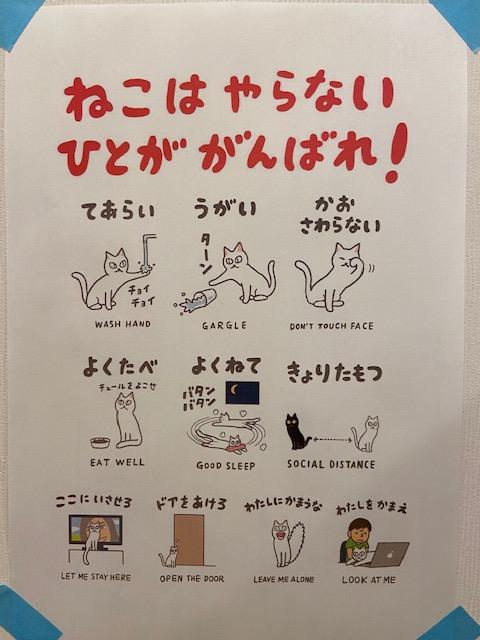 ねこは やらない
ひとが がんばれ!
てあらい
チョイ
チョイ
WASH HAND
うがい
ターン
GARGLE
かお
さわらない
DON'T TOUCH FACE
よくたべ
チュールをよこせ
EAT WELL
よくねて
バタン
バタン
GOOD SLEEP
きょりたもつ
SOCIAL DISTANCE
ここにいさせろ
LET ME STAY HERE
ドアをあけろ
OPEN THE DOOR
わたしにかまうな
LEAVE ME ALONE
わたしをかまえ
LOOK AT ME